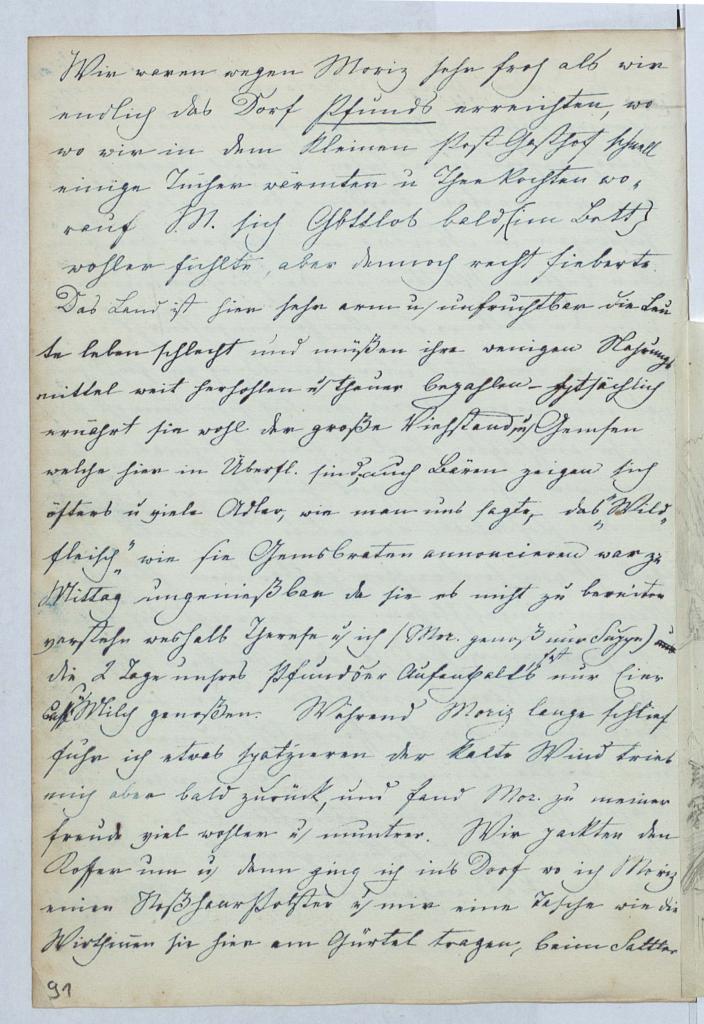 Wir waren wegen Moriz sehr froh als wir
endlich das Dorf Pfunds erreichten, wo
wo wir in dem kleinen Post Gasthof schnell
einige Tücher wärmten u Thee kochten wo,
rauf M. sich Gottlob bald (im Bett)
wohler fühlte, aber dennoch recht fieberte.
Das Land ist hier sehr arm u, unfruchtbar die Leu
te leben schlecht und müßen ihre wenigen Nahrungs
mittel weit herhohlen u theuer bezahlen –
ernährt sie wohl der große Viehstand, u Gemsen
welche hier in Überfl. sind, auch Bären zeigen sich
öfters u viele Adler, wie man uns sagte, das "Wild„
fleisch" wie sie Gemsbraten annoncieren war zu
Mittag ungenießbar da sie es nicht zu bereiten
verstehn weshalb Therese u, ich (Mor. genoß nur Suppe)
die 2 Tage unsres Pfundser Aufenthalts fast nur Eier
Milch genoßen. Während Moriz lange schlief
fuhr ich etwas spatzieren der kalte Wind trieb
mich aber bald zurück, und fand Mor. zu meiner
freude viel wohler u, muntrer. Wir packten den
Koffer um u, dann ging ich in's Dorf wo ich Moriz
einen RoßhaarPolster u, mir eine Tasche wie die
Wirthinnen sie hier am Gürtel tragen, beim Sattler
91